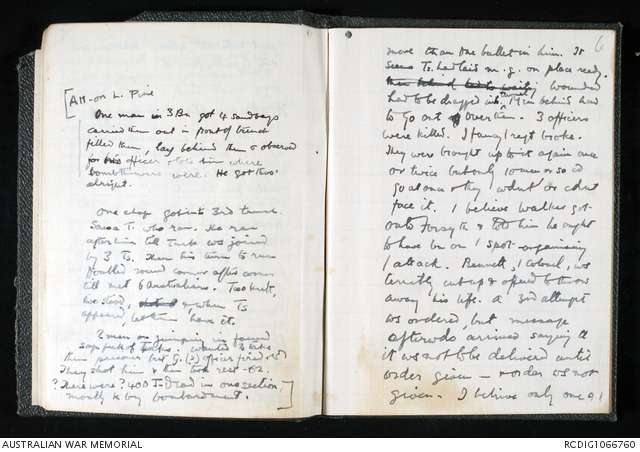 [AM - on L. Pine
One man in 3 Bn got 4 sandbags
carried them out in front of trench
filled them, lay behind them & observed
for his officer & told him where
bombthrowers were. He got thro'
alright.
One chap got into 3rd trench.
Saw a T. who ran. He ran
after him till Turk was joined
by 3 Ts. Then his turn to run
Doubled round corner after corner
till met 6 Australians. Took
he stood, & when Ts
appeared, let them have it.
2 men
saps full of wanted to take
them prisoners but G. (?) officer fired
They shot him & then took rest - 62.
? There were ? 400 T. Dead in one section.
mostly by bombardment.]
6
more than one bullet in him. It
seems Ts. had laid m.g. on place ready.
wounded
had to be dragged in & men behind had
to go out over them. 3 officers
were killed. I fancy regt broke.
They were brought up to it again once
or twice but only 10 men or so wd
go at once & they wdnt or cdnt
face it. I believe Walker got
onto Forsyth & told him he ought
to have bn on / spot organising
/ attack. Bennett, / Colonel, was
terribly cut up & offered to throw
away his life. A 3rd attempt
was ordered, but message
afterwds arrived saying tt
it was not to be delivered until
order given - & order ws not
given. I believe only one o /
AUSTRALIAN WAR MEMORIAL
RCDIG1066760